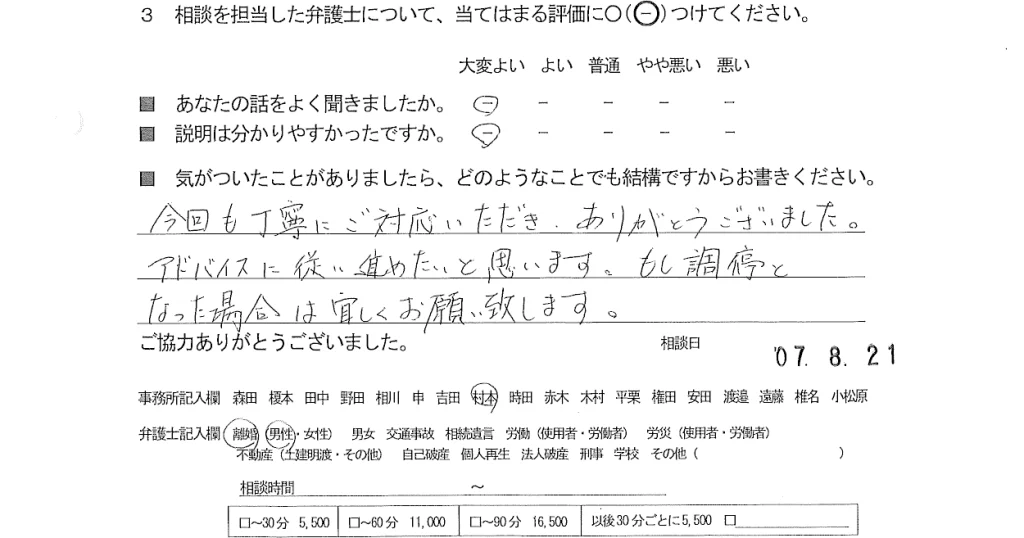 3 相談を担当した弁護士について、当てはまる評価に○(㊀)つけてください。
大変よい よい 普通 やや悪い 悪い
■ あなたの話をよく聞きましたか。 − − − − −
■ 説明は分かりやすかったですか。 − − − − −
■ 気がついたことがありましたら、どのようなことでも結構ですからお書きください。
今回も丁寧にご対応いただき、ありがとうございました。
アドバイスに従い進めたいと思います。もし調停と
なった場合は宜しくお願い致します。
ご協力ありがとうございました。 相談日 '07. 8. 21
事務所記入欄 森田 榎本 田中 野田 相川 申 吉田 村本 時田 赤木 木村 平栗 権田 安田 渡邉 遠藤 椎名 小松原
弁護士記入欄 離婚 (男性・女性) 男女 交通事故 相続遺言 労働 (使用者・労働者) 労災 (使用者・労働者)
不動産 (土建明渡・その他) 自己破産 個人再生 法人破産 刑事 学校 その他 ( )
相談時間 〜
□〜30分 5,500 □〜60分 11,000 □〜90分 16,500 以後30分ごとに5,500 □